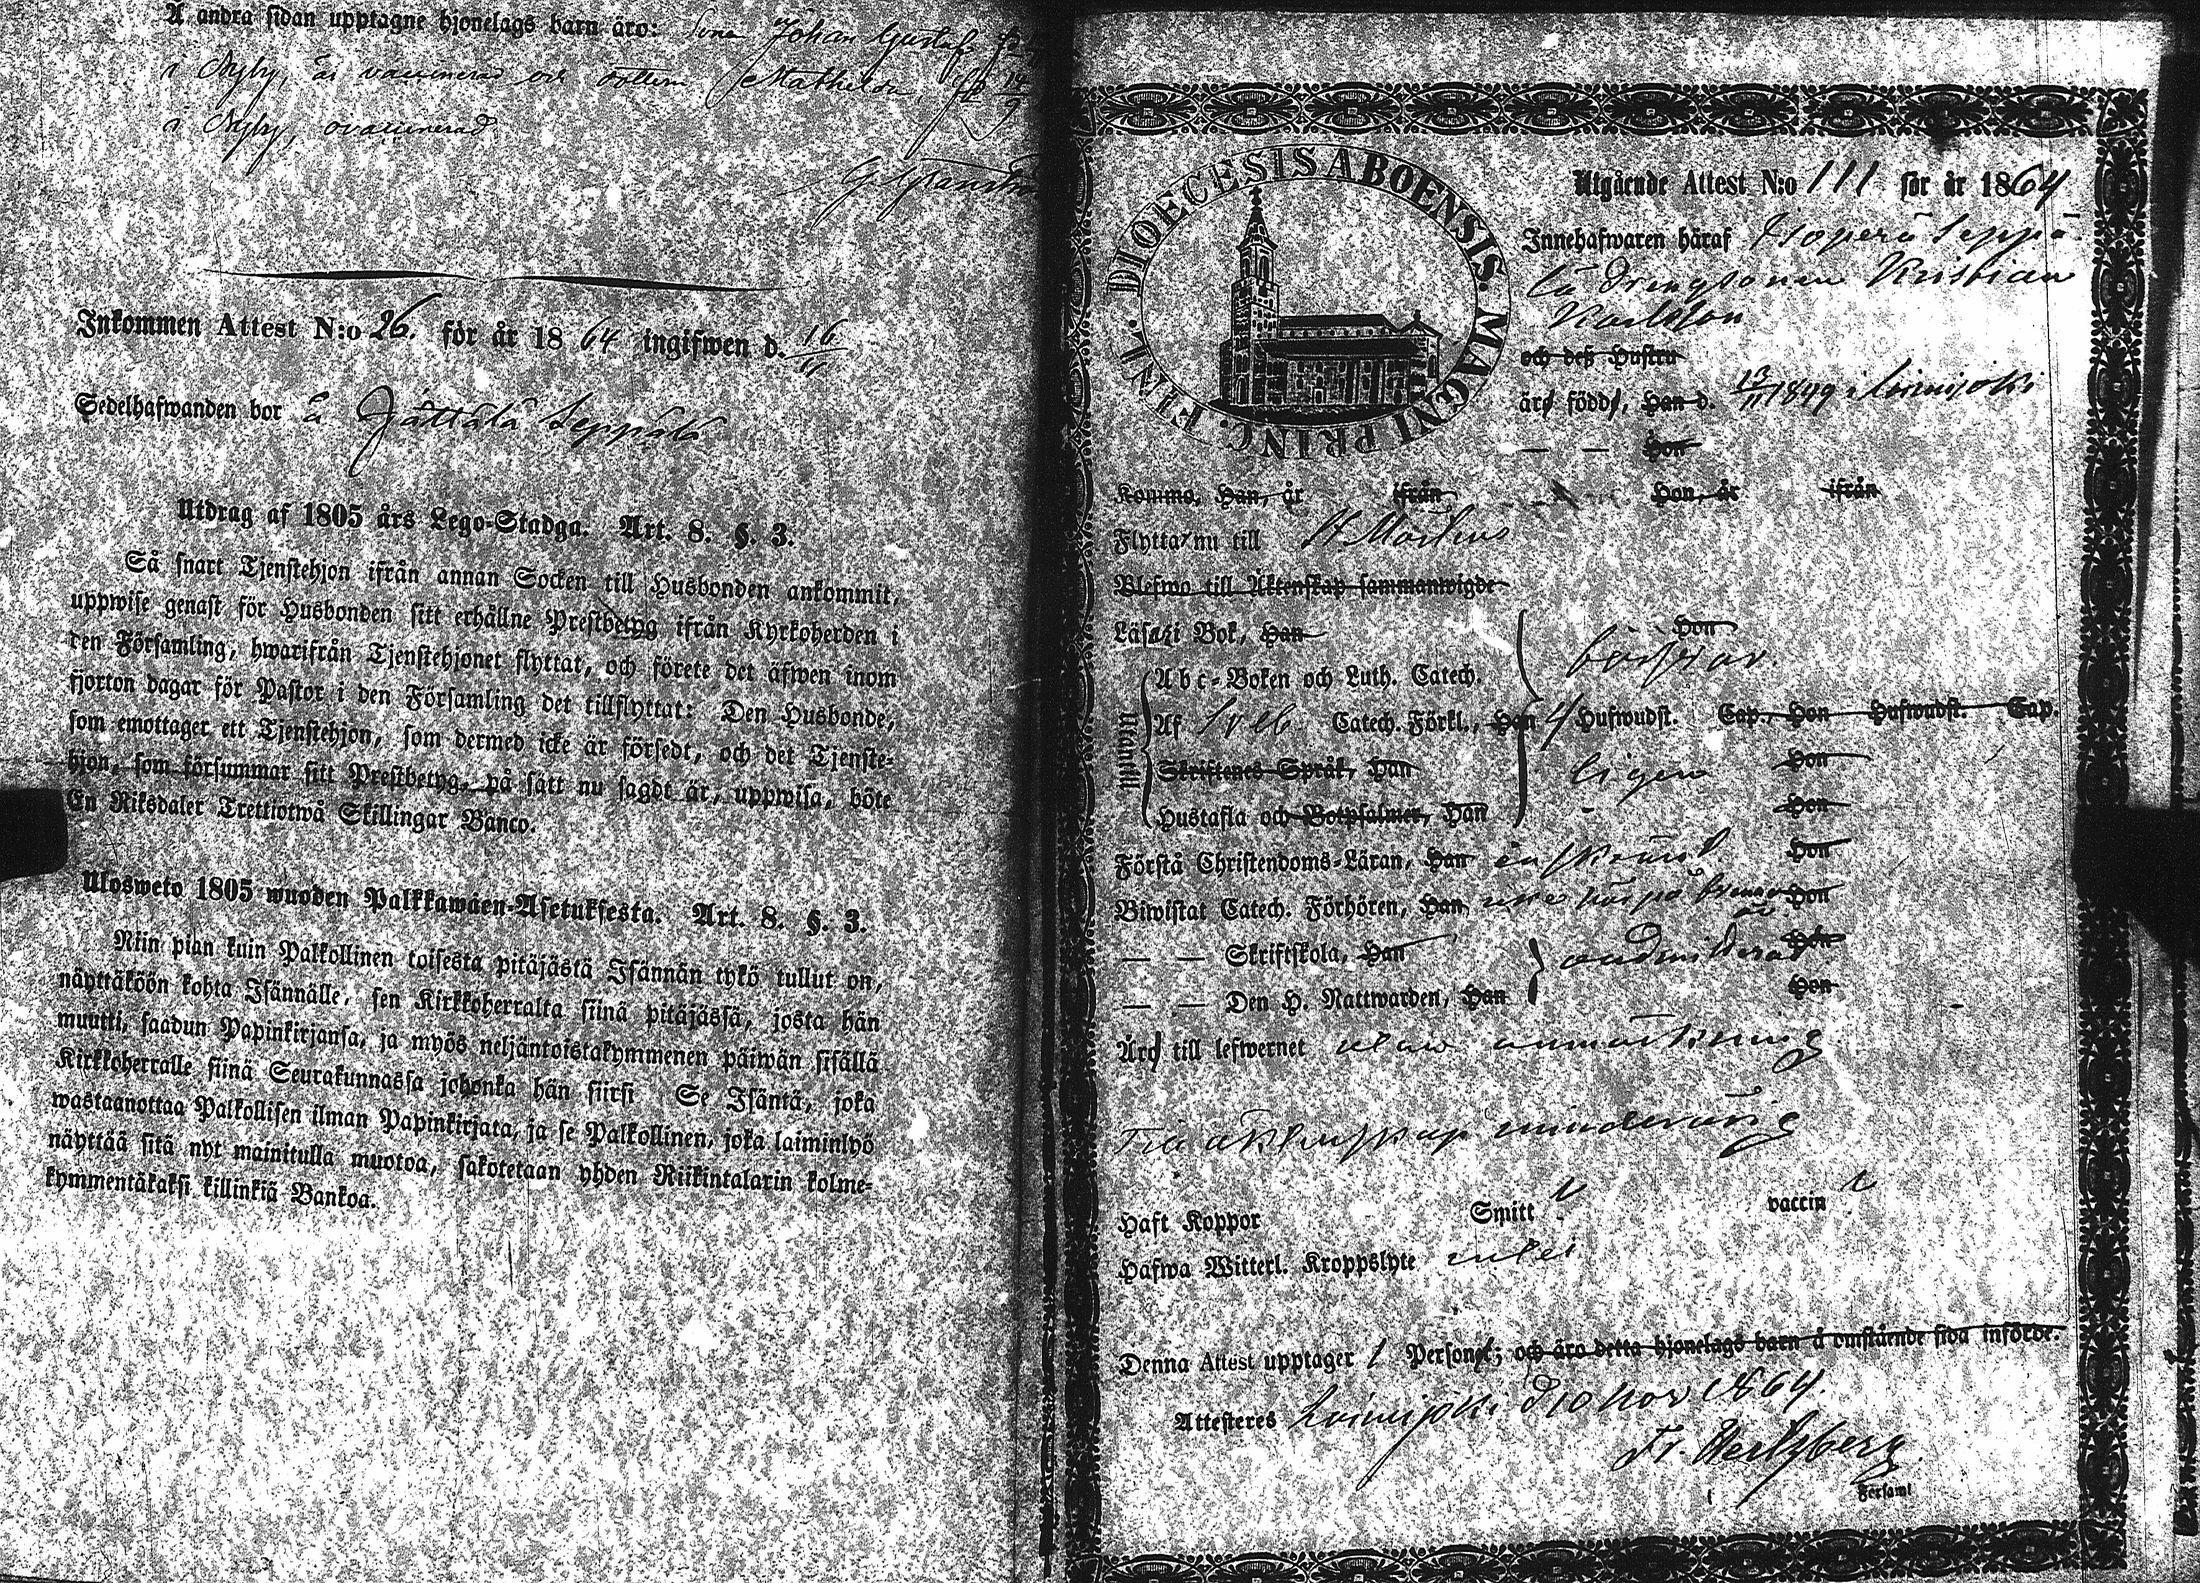 Å andra sidan upptagne hjonelags barn äro: Sonen Johan Gustaf
i Nyby, är vaccinerad och dottern Mathilda, 14/9
i Nyby, ovaccinerad
Inkommen Attest N:o 26. för år 1864 ingifwen d. 16/11
Sedelhafwanden bor å Jättälä Seppälä
Utdrag af 1805 års Lego-Stadga. Art. 8. §. 3.
Så snart Tjenstehjon ifrån annan Socken till Husbonden ankommit,
uppwise genast för Husbonden sitt erhållne Prestbetyg ifrån Kyrkoherden i
den Församling, hwarifrån Tjenstehjonet flyttat, och förete det äfwen inom
fjorton dagar för Pastor i den Församling det tillflyttat: Den Husbonde,
som emottager ett Tjenstehjon, som dermed icke är försedt, och det Tjenste-
hjon, som försummar sitt Prestbetyg, på sätt nu sagdt är, uppwisa, böte
En Riksdaler Trettiotwå Skillingar Banco.
Ulosweto 1805 wuoden Palkkawäen-Asetuksesta. Art. 8. §. 3.
Niin pian kuin Palkollinen toisesta pitäjästä Isännän tykö tullut on,
näyttäköön kohta Isännälle, sen Kirkkoherralta siinä pitäjässä, josta hän
muutti, saadun Papinkirjansa, ja myös neljäntoistakymmenen päiwän sisällä
Kirkkoherralle siinä Seurakunnassa johonka hän siirsi Se Isäntä, joka
wastaanottaa Palkollisen ilman Papinkirjata, ja se Palkollinen, joka laiminlyö
näyttää sitä nyt mainitulla muotoa, sakotetaan yhden Riikintalarin kolme-
kymmentäkaksi killinkiä Bankoa.
DIOECESIS ABOENSIS. MAGNI PRINC. FINL.
Utgående Attest N:o 111 för år 1864
Innehafwaren häraf Isoperä Seppä-
lä Drengsonen Kristian
Karlsson
och deß Hustru
äro födde, Han d. 13/11 1849 i Loimijoki
— — Hon
Komma, Han, år ifrån Hon, år ifrån
Flytta nu till St. Mårtens
Blefwo till Äktenskap sammanwigde
Läsa i Bok, Han Hon
försvar.
Utantill
Abc-Boken och Luth. Catech.
Af Sveb. Catech. Förkl., Han 4 Hufwudst. Cap., Hon Hufwudst. Cap.
Skriftenes Språk, Han Hon
Hustafla och Botpsalmer, Han Hon
Förstå Christendoms-Läran, Han Hon
Biwistat Catech. Förhören, Han Hon
— — Skriftskola, Han oadmitterad Hon
— — Den H. Nattwarden, Han Hon
Äro till lefwernet utan anmärkning
Till äktenskap minderårig
Haft Koppor Smitt vaccin
Hafwa Witterl. Kroppslyte intet
Denna Attest upptager 1 Person; och äro detta hjonelags barn å omstående sida införde.
Attesteres Loimijoki d 10 Nov 1864.
Fr. Hertzberg
i Församl